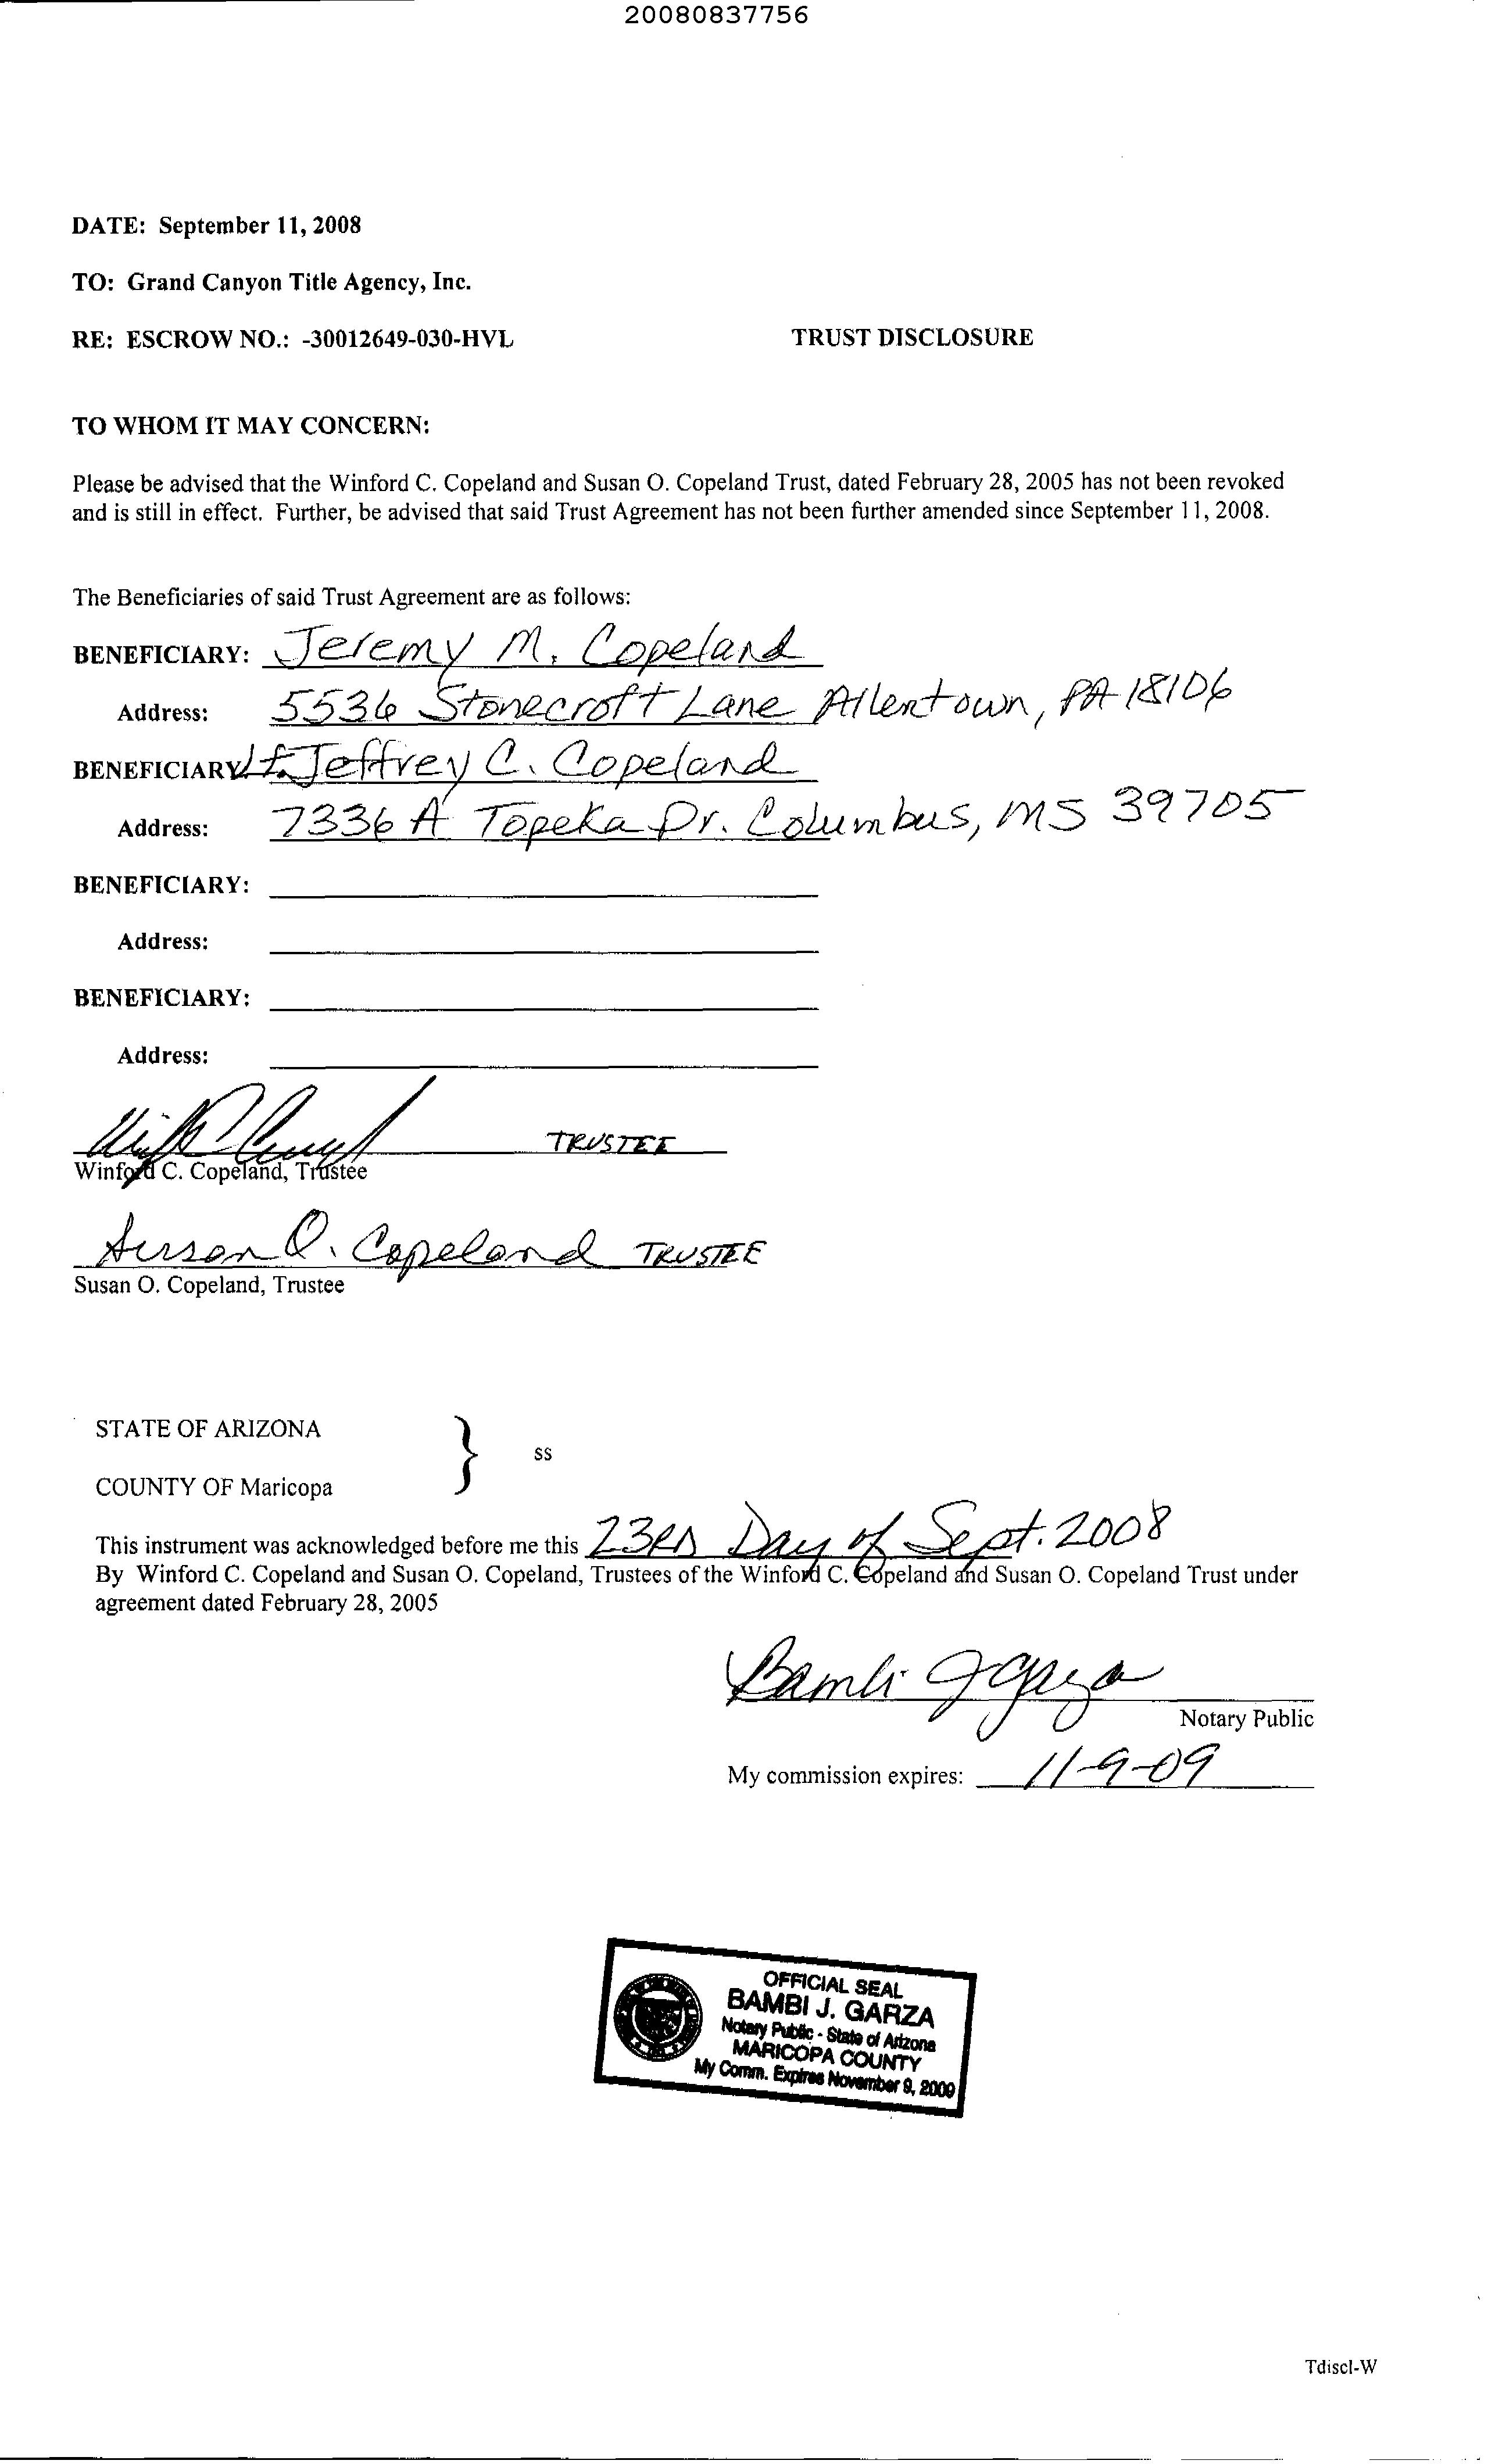 20080837756
DATE: September 11, 2008
TO: Grand Canyon Title Agency, Inc.
RE: ESCROW NO.: -30012649-030-HVL TRUST DISCLOSURE
TO WHOM IT MAY CONCERN:
Please be advised that the Winford C. Copeland and Susan O. Copeland Trust, dated February 28, 2005 has not been revoked
and is still in effect. Further, be advised that said Trust Agreement has not been further amended since September 11, 2008.
The Beneficiaries of said Trust Agreement are as follows:
BENEFICIARY: Jeremy M. Copeland
Address: 5536 Stonecroft Lane Allentown, PA 18106
BENEFICIARY: Lt. Jeffrey C. Copeland
Address: 7336 A Topeka Dr. Columbus, MS 39705
BENEFICIARY:
Address:
BENEFICIARY:
Address:
TRUSTEE
Winford C. Copeland, Trustee
Susan O. Copeland TRUSTEE
Susan O. Copeland, Trustee
STATE OF ARIZONA
} ss
COUNTY OF Maricopa
This instrument was acknowledged before me this 23RD Day of Sept. 2008
By Winford C. Copeland and Susan O. Copeland, Trustees of the Winford C. Copeland and Susan O. Copeland Trust under
agreement dated February 28, 2005
Bambi J Garza
Notary Public
My commission expires: 11-9-09
OFFICIAL SEAL
BAMBI J. GARZA
Notary Public - State of Arizona
MARICOPA COUNTY
My Comm. Expires November 9, 2009
Tdiscl-W